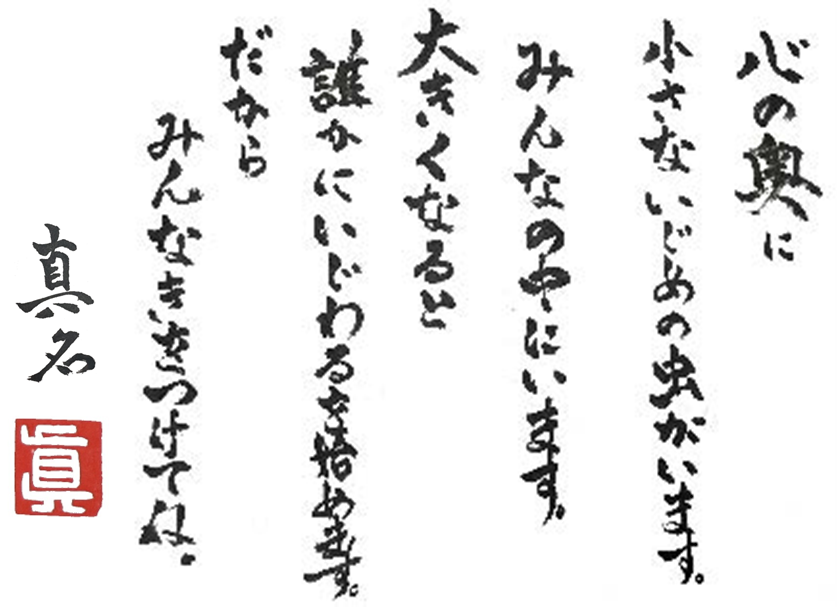 心の奥に
小さないじめの虫がいます。
みんなの中にいます。
大きくなると
誰かにいじわるを始めます。
だから
みんなきをつけてね。
真名
眞